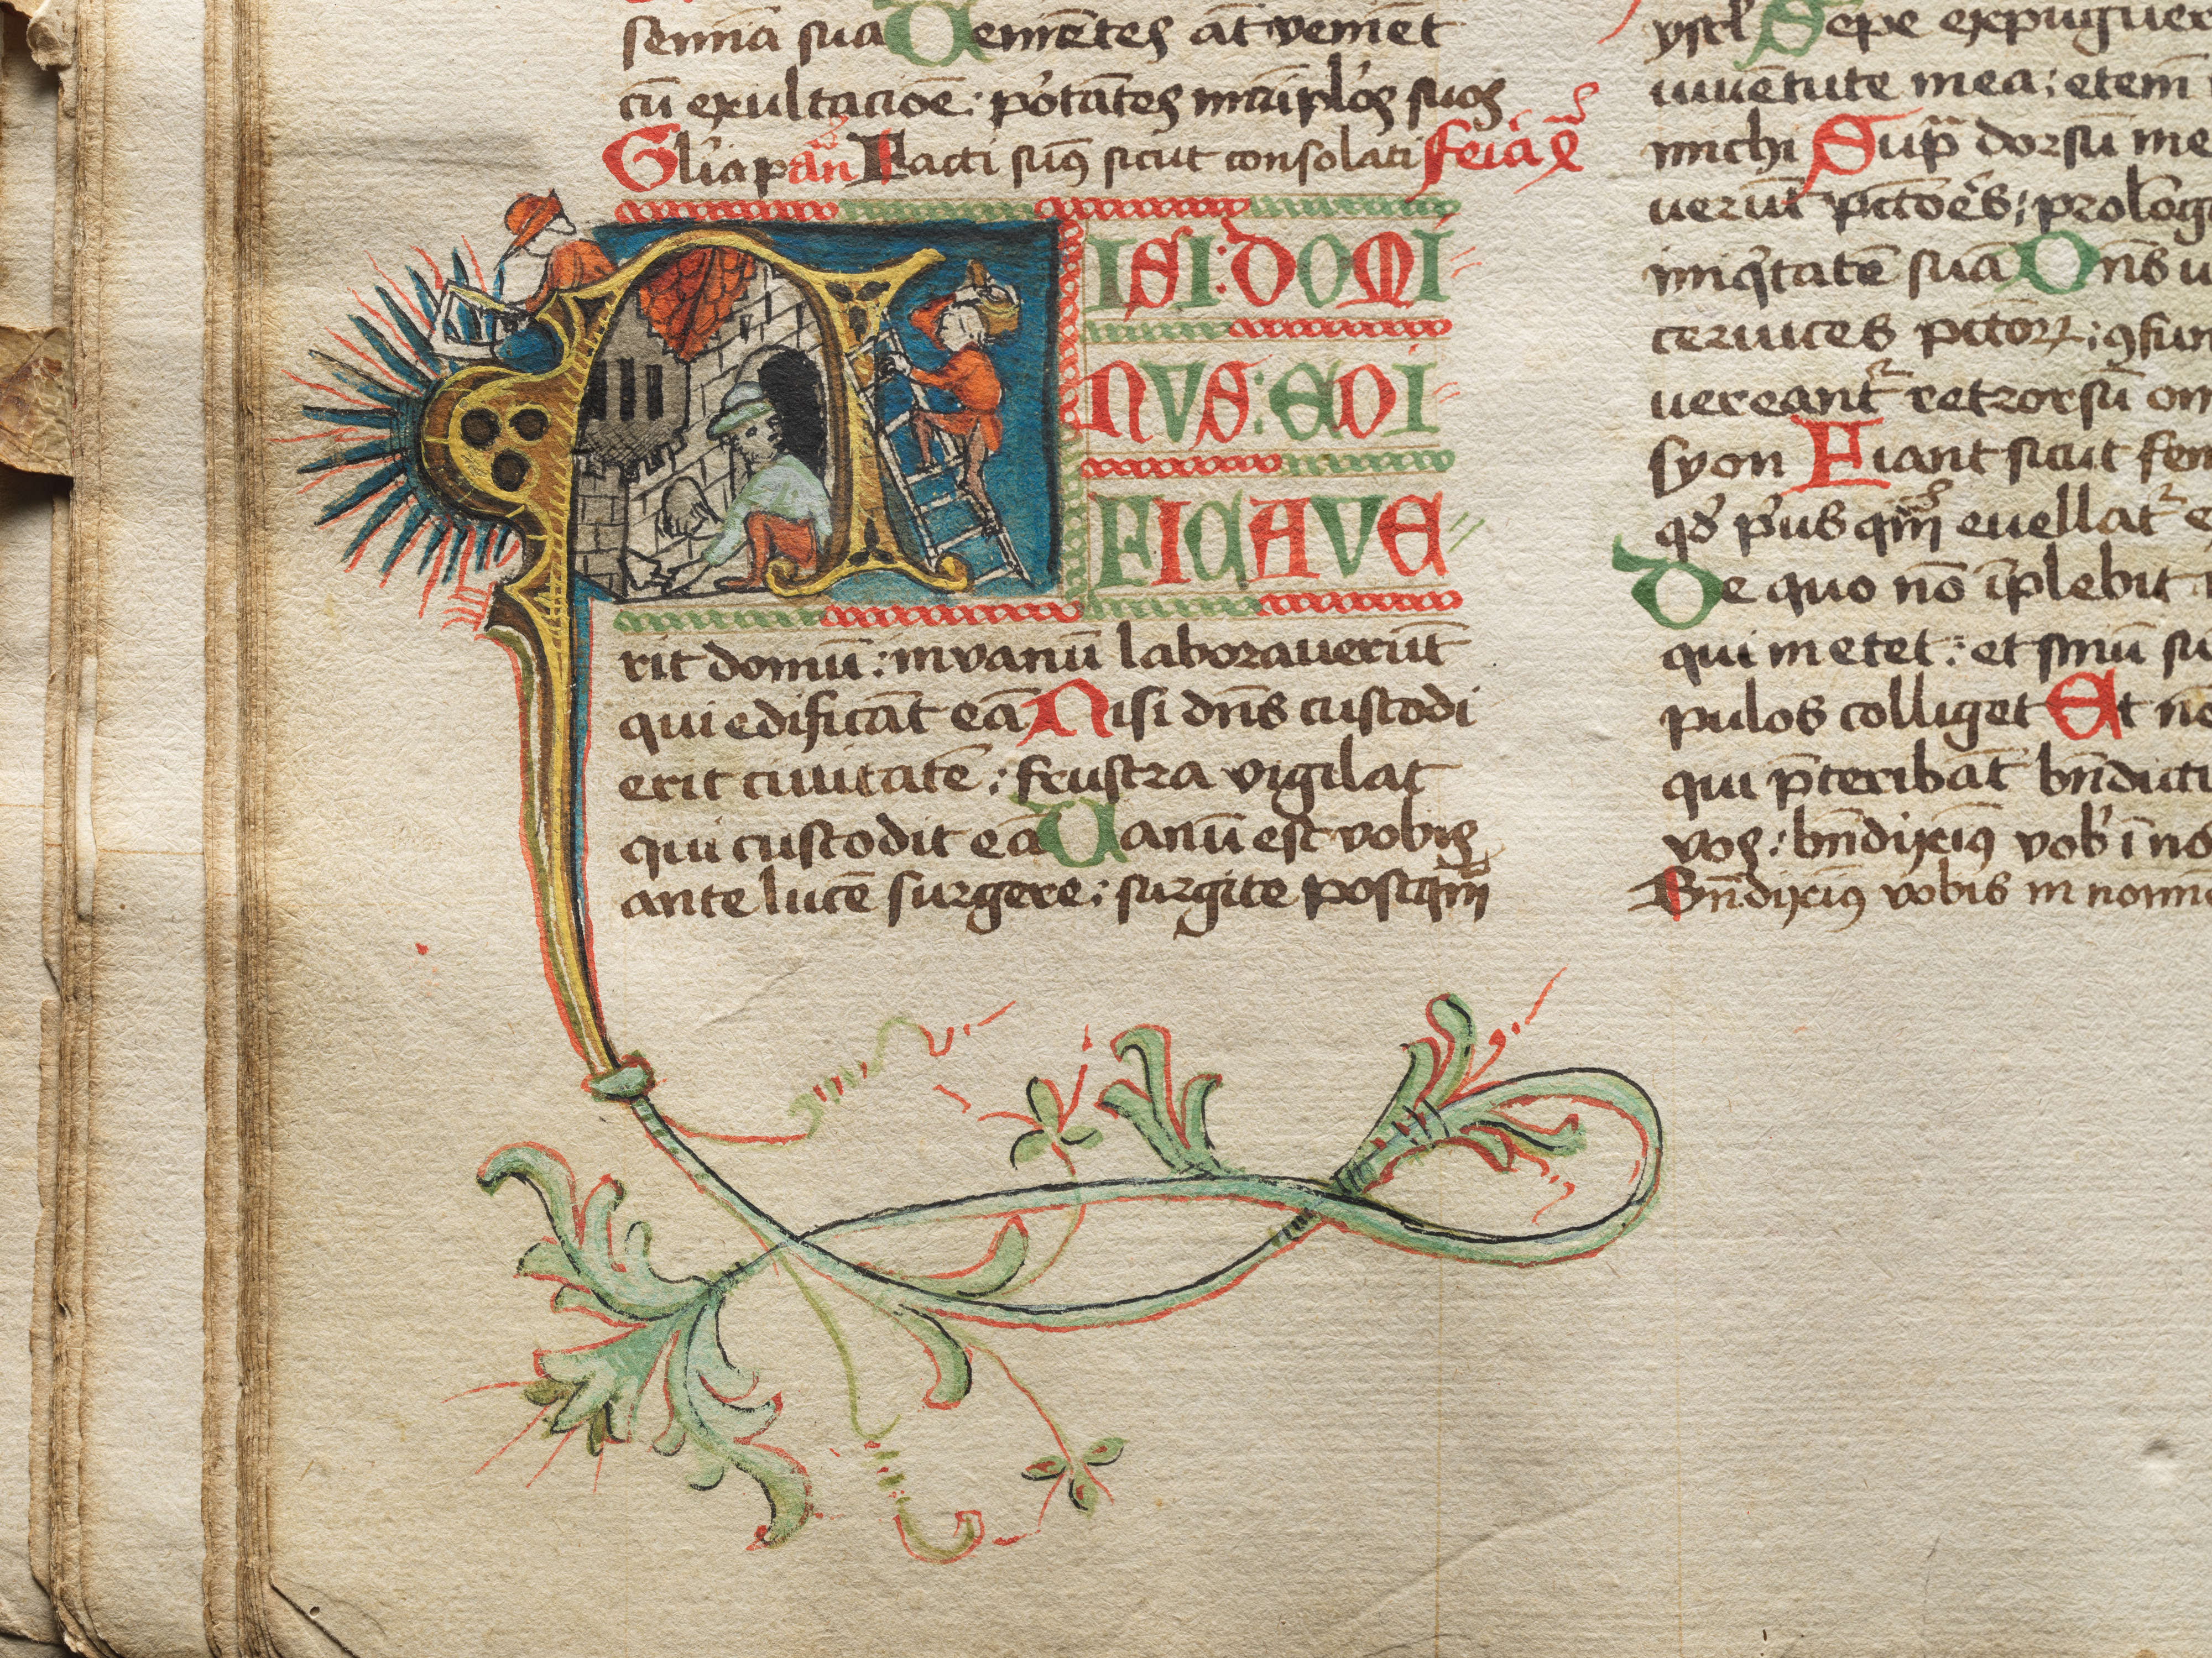 semina sua Uenientes āt veniēt
cū exultacioē : portātes mãiplos suos
Glīa pan̄ Facti sum9 sicut consolati feīa
NISI : DOMI
NVS : EDI
FICAVE
rit domū : in vanū laborauerūt
qui edificāt eā Nisi dn̄s custodi
erit ciuitatē : frustra vigilat
qui custodit eā Uanū est vobis
ante lucē surgere : surgite postqm̄
Sepe expugner
iuuētute mea : etem
michi Sup dorsū me
uerūt pctōēs : prolōg
iniqtatē suā Dn̄s
ceruices pctor :
uereant retrorsū om
syon Fiant sicut fen
qd p'us qm̄ euellat e
De quo nō īplebit
qui metet : et sinū su
pulos colliget Et nō
qui p̄teribāt bn̄dicti
vos : bn̄dixim9 vob' ī no
Bn̄dixim9 vobis in nomi